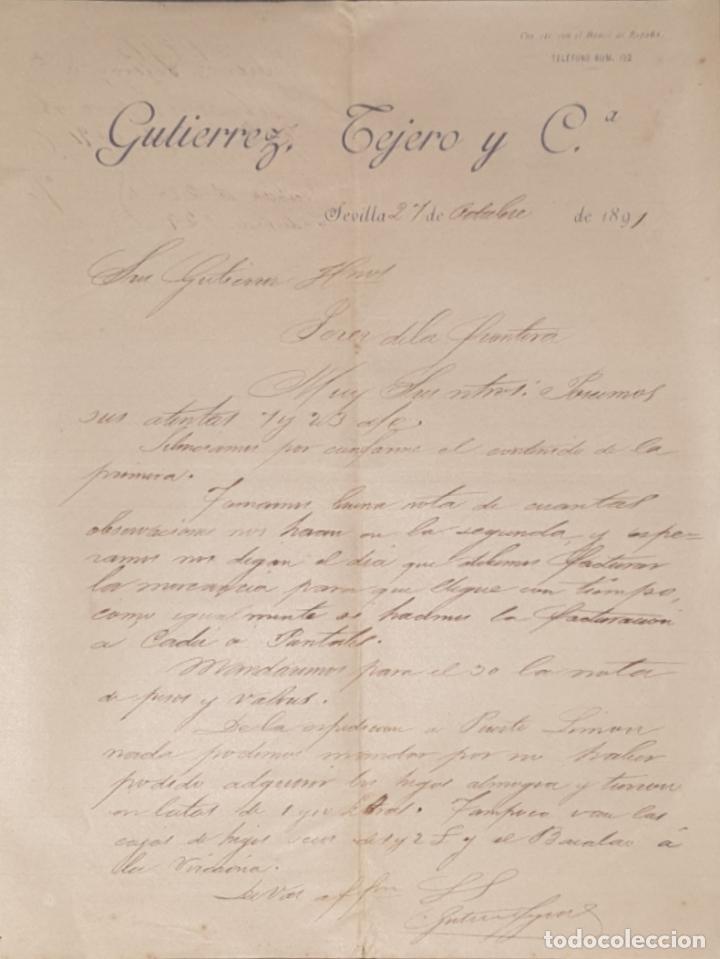 Cta. cte. con el Banco de España.
TELÉFONO NUM. 192
Gutierrez, Tejero y C.ª
Sevilla 27 de Octubre de 1891
Sres Gutierrez Hnos
Jerez de la Frontera
Muy Sres ntros: Poseemos
sus atentas 7 y 23 a/c.
por conforme el contenido de la
primera.
Tomamos buena nota de cuantas
observaciones nos hacen en la segunda, y espe=
ramos nos digan el dia que debemos facturar
la mercancia para que llegue con tiempo,
como igualmente si hacemos la facturación
á Cadiz o Puntales.
Mandaremos para el 30 la nota
de pesos y valores.
De la expedicion a Puerto Limon
nada podemos mandar por no haber
podido adquirir los higos almagra y
en latas de 1 y 10 Kilos. Tampoco van las
cajas de higos de 1 y 2 y el Bacalao á
la Vizcaina.
De Vds aff
todocoleccion